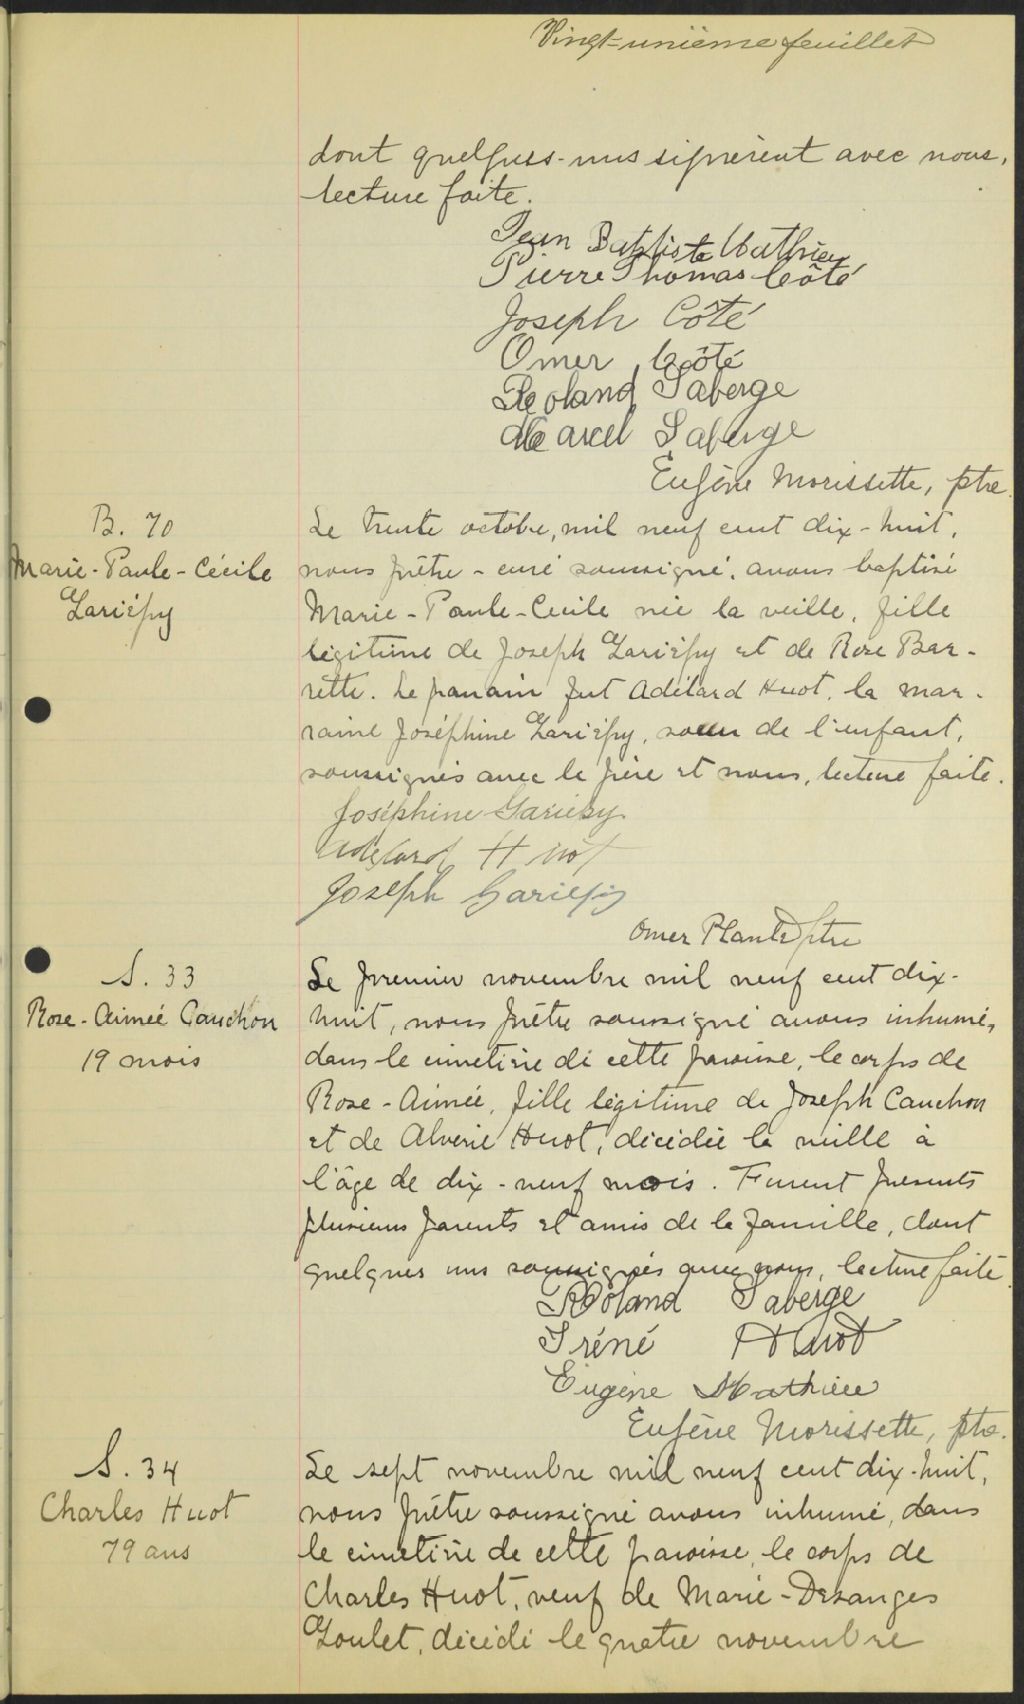 Vingt-unième feuillet
dont quelques-uns signèrent avec nous,
lecture faite.
Jean Baptiste Mathieu
Pierre Thomas Côté
Joseph Côté
Omer Côté
Roland Laberge
Marcel Laberge
Eugène Morissette, ptre.
B. 70
Marie-Paule-Cécile
Gariépy
Le trente octobre, mil neuf cent dix-huit,
nous prêtre-curé soussigné, avons baptisé
Marie-Paule-Cecile née la veille, fille
légitime de Joseph Gariépy et de Rose Bar-
rette. Le parrain fut Adélard Huot, la mar-
raine Joséphine Gariépy, soeur de l'enfant,
soussignés avec le père et nous, lecture faite.
Joséphine Gariépy
Adélard Huot
Joseph Gariépy
Omer Plante ptre
S. 33
Rose-Aimée Cauchon
19 mois
Le premier novembre mil neuf cent dix-
huit, nous prêtre soussigné avons inhumé,
dans le cimetière de cette paroisse, le corps de
Rose-Aimée, fille légitime de Joseph Cauchon
et de Alvérie Huot, décédée la veille à
l'âge de dix-neuf mois. Furent présents
plusieurs parents et amis de la famille, dont
quelques uns soussignés avec nous, lecture faite.
Roland Laberge
Iréné Huot
Eugène Mathieu
Eugène Morissette, ptre.
S. 34
Charles Huot
79 ans
Le sept novembre mil neuf cent dix-huit,
nous prêtre soussigné avons inhumé, dans
le cimetière de cette paroisse, le corps de
Charles Huot, veuf de Marie-Desanges
Goulet, décédé le quatre novembre